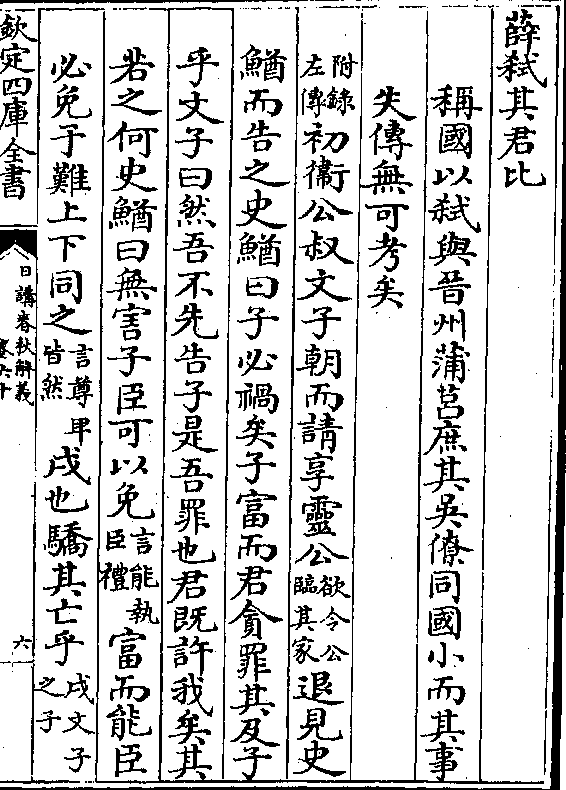 薛弑其君比
稱國以弑與晉州蒲莒庶其吳僚同國小而其事
失傳無可考矣
附錄左傳初衞公叔文子朝而請享靈公欲令公臨其家退見史
鰌而告之史鰌曰子必禍矣子富而君貪罪其及子
乎文子曰然吾不先告子是吾罪也君既許我矣其
若之何史鰌曰無害子臣可以免言能執臣禮富而能臣
必免于難上下同之言尊卑皆然戌也驕其亡乎戌文子之子
欽定四庫全書
日講春秋解義
卷六十
六